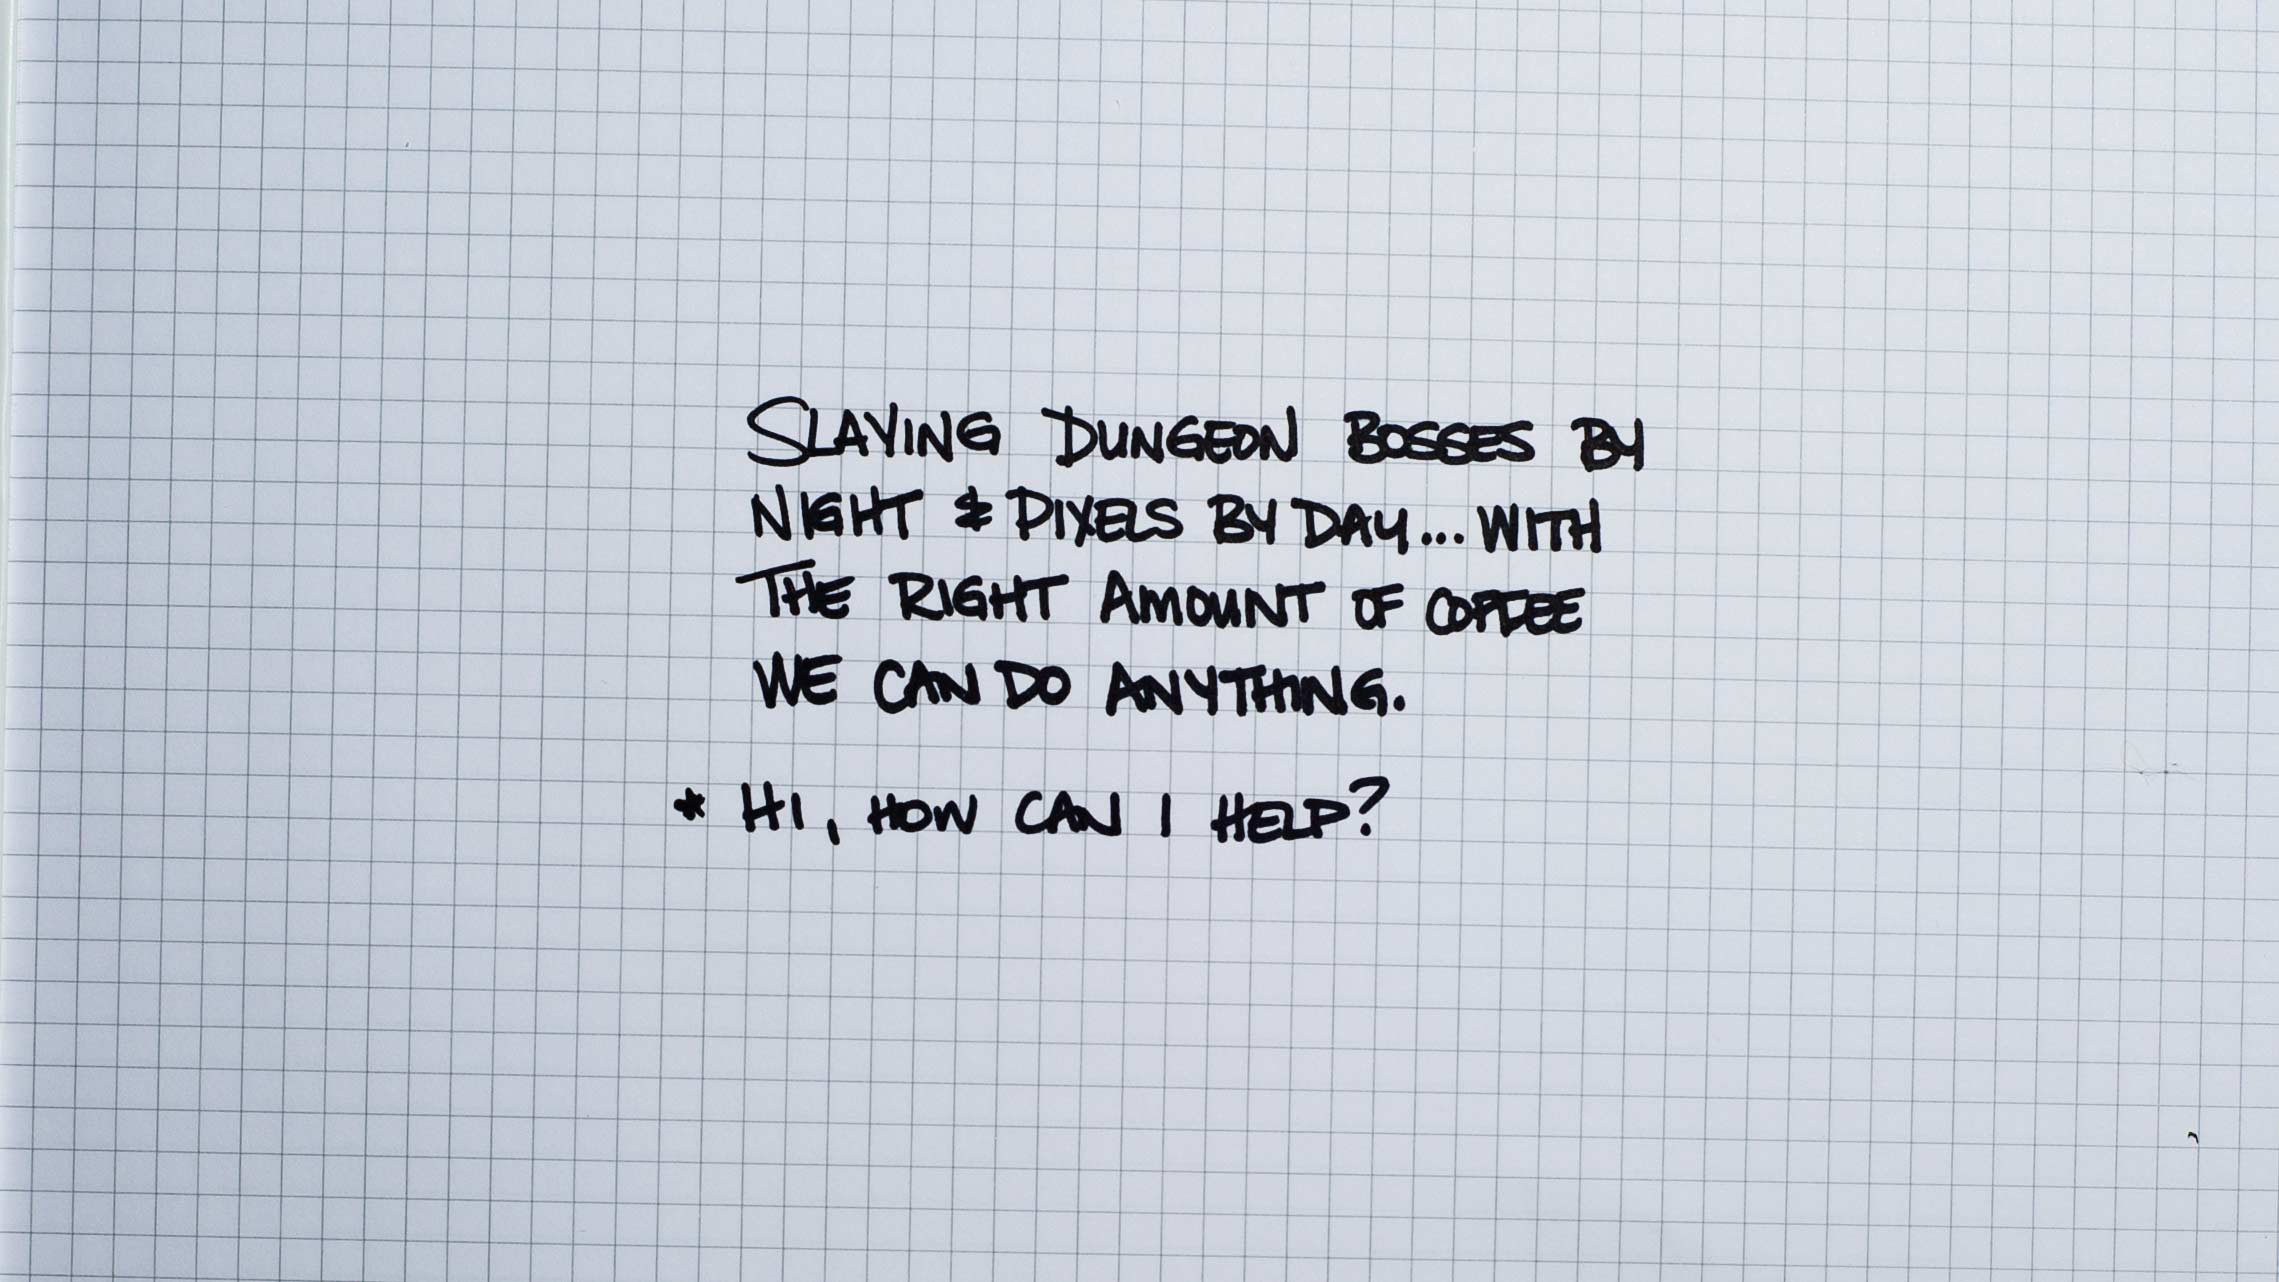 SLAYING DUNGEON BOSSES BY
NIGHT & PIXELS BY DAY... WITH
THE RIGHT AMOUNT OF COFFEE
WE CAN DO ANYTHING.
* HI, HOW CAN I HELP?